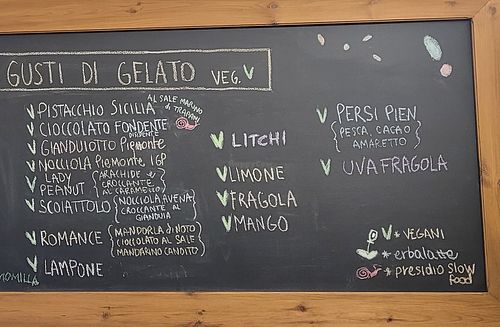 GUSTI DI GELATO VEG. V
V PISTACCHIO SICILIA AL SALE MARINO
DI TRAPANI
V CIOCCOLATO FONDENTE
V GIANDUIOTTO Piemonte
V NOCCIOLA Piemonte IGP
V LADY
PEANUT
ARACHIDE e
CROCCANTE
AL CARAMELLO
V SCOIATTOLO
NOCCIOLA AVENA
CROCCANTE AL
GIANDUIA
V ROMANCE
MANDORLA DI NOTO
CIOCCOLATO AL SALE
MANDARINO CANDITO
V LAMPONE
MOMILLA
V LITCHI
V LIMONE
V FRAGOLA
V MANGO
V PERSI PIEN
PESCA, CACAO
AMARETTO
V UVA FRAGOLA
V * VEGANI
* erbalatte
* presidio slow
food